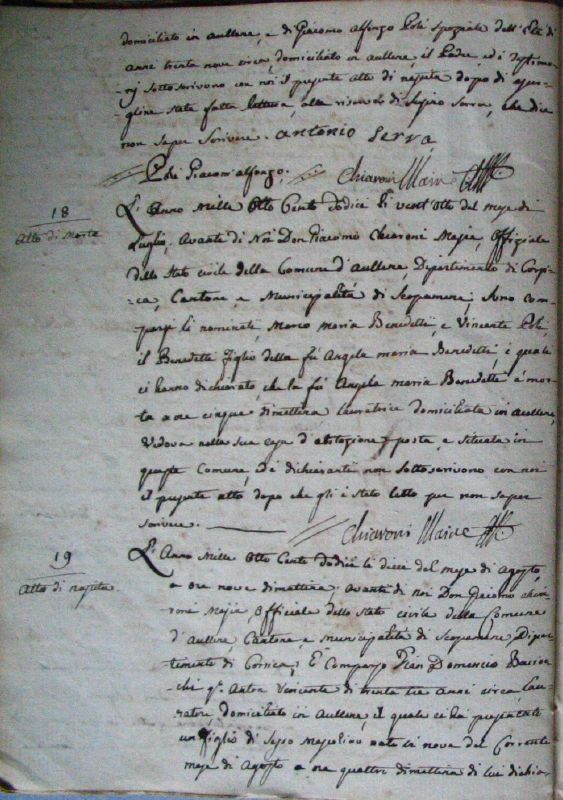 domiciliato in aullene, e di Giacomo alfonzo Poli spoznale dell'Età di
anni trenta nove circa, domiciliato in aullene, il Padre, ed i
sottoscrivono con noi il presente atto di nascita dopo di
stata fatta lettura, alla riserva di Serra, che dice
non saper scrivere. antonio serra
Poli Giacom'alfonzo. Chiaroni Maire
18
Atto di Morte
L'Anno Mille Otto Cento dodice li vent'otto del mese di
Luglio, Avante di Noi Don Giacomo Chiaroni Majre, Offiziale
dello Stato civile della Comune d'Aullene Dipartimento di Corsi-
ca, Cantone, e Municipalità di Scopamene, Sono com-
parsi li nominati, Marco Maria Benedetti, e Vincente Poli,
il Benedetti figlio della fù Angela maria Benedetti, i quali
ci hanno dichiarato, che la fù Angela maria Benedetti è mor-
ta a ore cinque di mattina lavoratrice domiciliata in aullene,
Vedova nella sua casa d'abitazione posta, e situata in
queste Comune, ed i dichiaranti non sottoscrivono con noi
il presente atto dopo che gli è stato letto per non saper
scrivere. Chiaroni Maire
19
Atto di nascita
L'Anno Mille Otto Cento dodice li dieci del mese di Agosto,
a ore nove di mattina; avante di noi Don Giacomo chia-
rone Majre, Officiale dello Stato civile della Comune
d'Aullene, Cantone, e Municipalità di Scopamene Dipar-
timento di Corsica; È Comparso Gian Domenico
chi q.m Anton Vincente di trenta tre Anni circa, Lau-
ratore domiciliato in Aullene, il quale ci ha presentato
un figlio di sesso Mascolino nato li nove del Corrente
mese di Agosto a ore quattro di mattina di lui dichia-